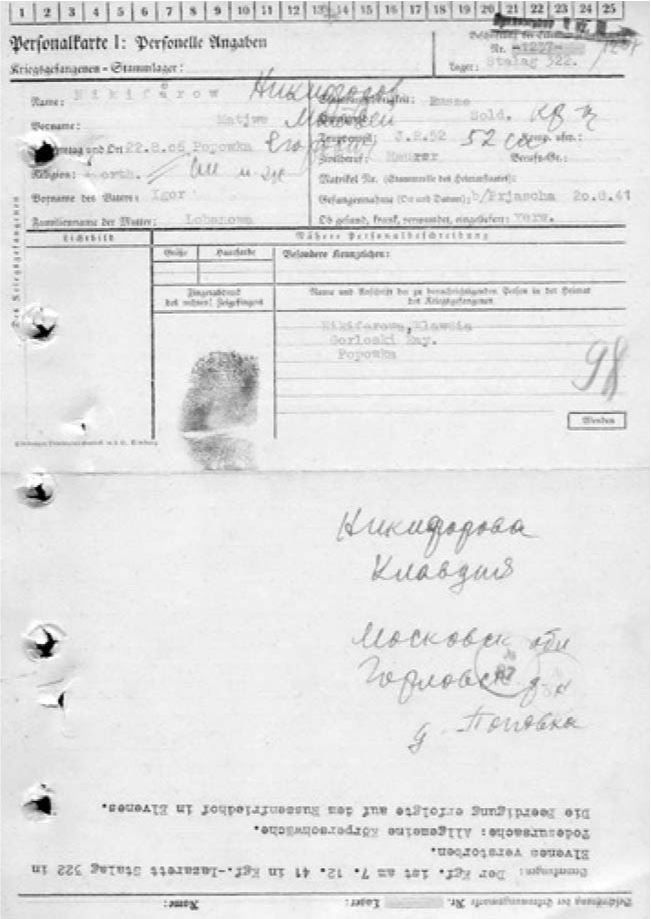 1 2 3 4 5 6 7 8 9 10 11 12 13 14 15 16 17 18 19 20 21 22 23 24 25
Personalkarte I: Personelle Angaben
Kriegsgefangenen-Stammlager:
Nr.
Lager: Stalag 322.
Name: Nikiforow Никифоров
Vorname: Matjwe Матвей
Sold.
und Ort 22.8.06 Popowka Егорович
3.2.52
Religion: orth.
Zivilberuf: Maurer Berufs-Gr.:
Matrikel Nr. (Stammrolle des Heimatstaates):
Vorname des Vaters: Igor
Gefangennahme (Ort und Datum): b/Prjascha 20.8.41
Familienname der Mutter: Lobanowa
Ob gesund, krank, verwundet, eingeliefert: verw.
Lichtbild
Nähere Personalbeschreibung
Größe Haarfarbe Besondere Kennzeichen:
Fingerabdruck
des rechten Zeigefingers
Name und Anschrift der zu benachrichtigenden Person in der Heimat
des Kriegsgefangenen
Nikifarowa, Klawdia
Gorloski Ray.
Popowka
98
Wenden
Никифорова
Клавдия
Московск обл
Горловск
д. Поповка
Name: Lager: Nr.
Bemerkungen: Der Kgf. ist am 7. 12. 41 im Kgf.-Lazarett Stalag 322 in
Elvenes verstorben.
Todesursache: Allgemeine Körperschwäche.
Die Beerdigung erfolgte auf dem Russenfriedhof in Elvenes.